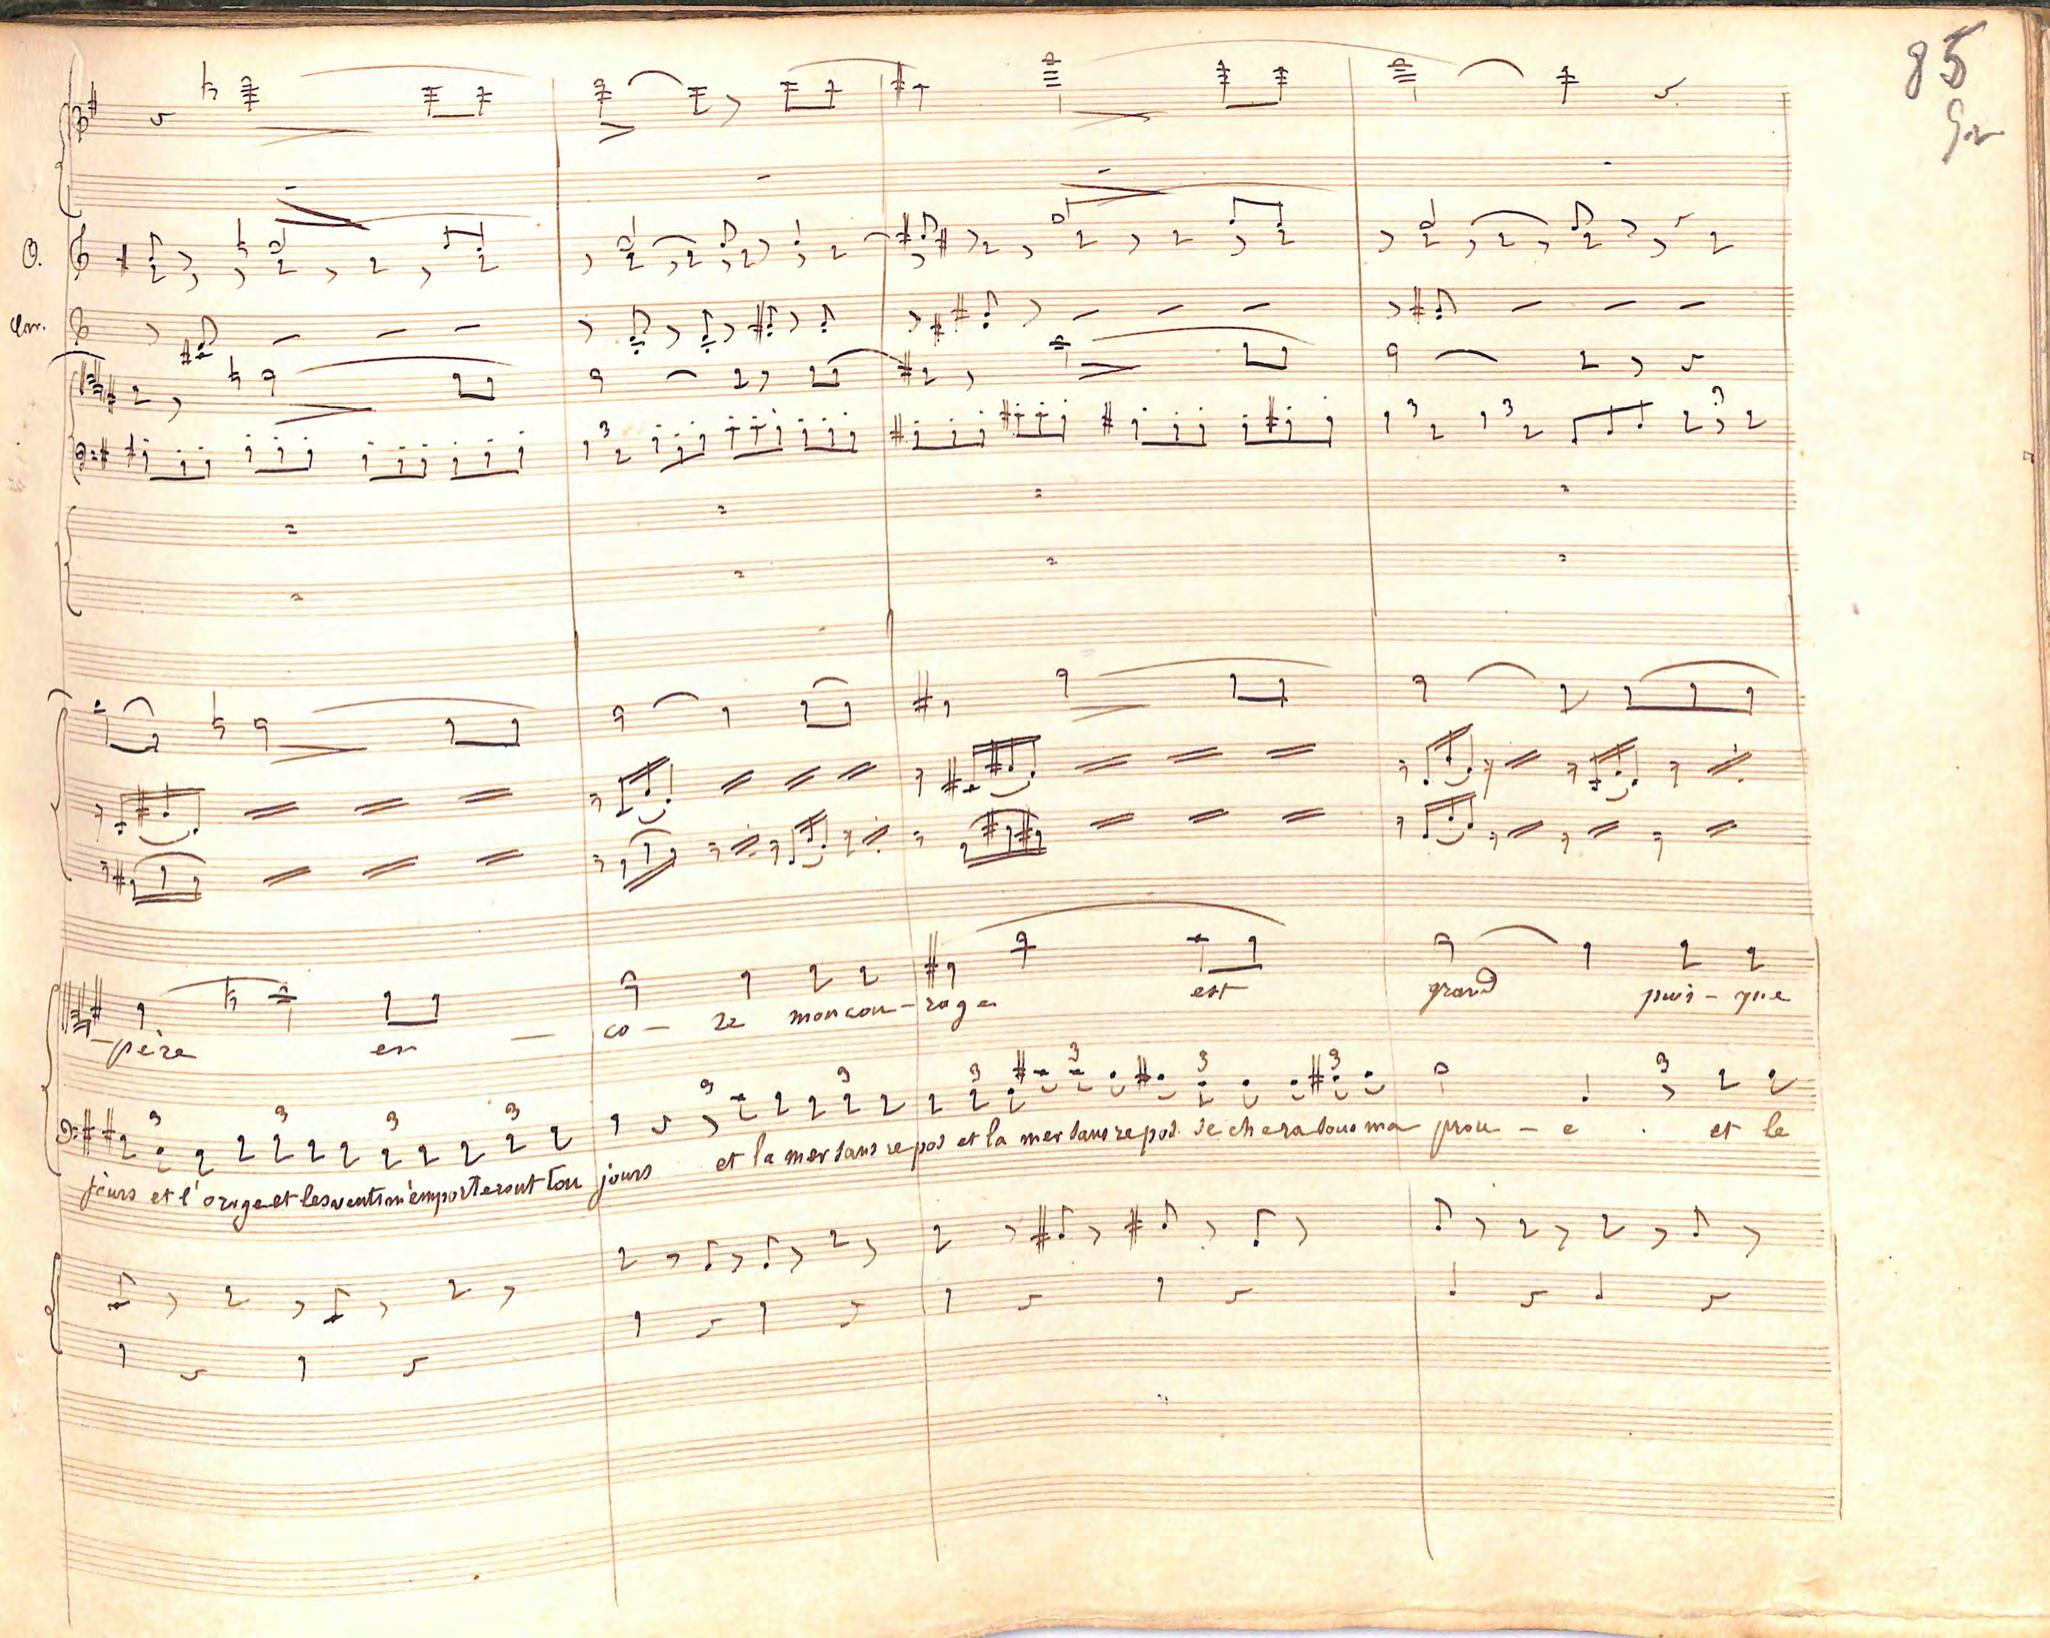 85
92
O.
Cor.
-père en — co - re mon cou - rage est grand puis - que
jours et l'orage et les vents m'emporteront tou jours et la mer sans repos et la mer sans repos se chera sous ma prou - e . et le